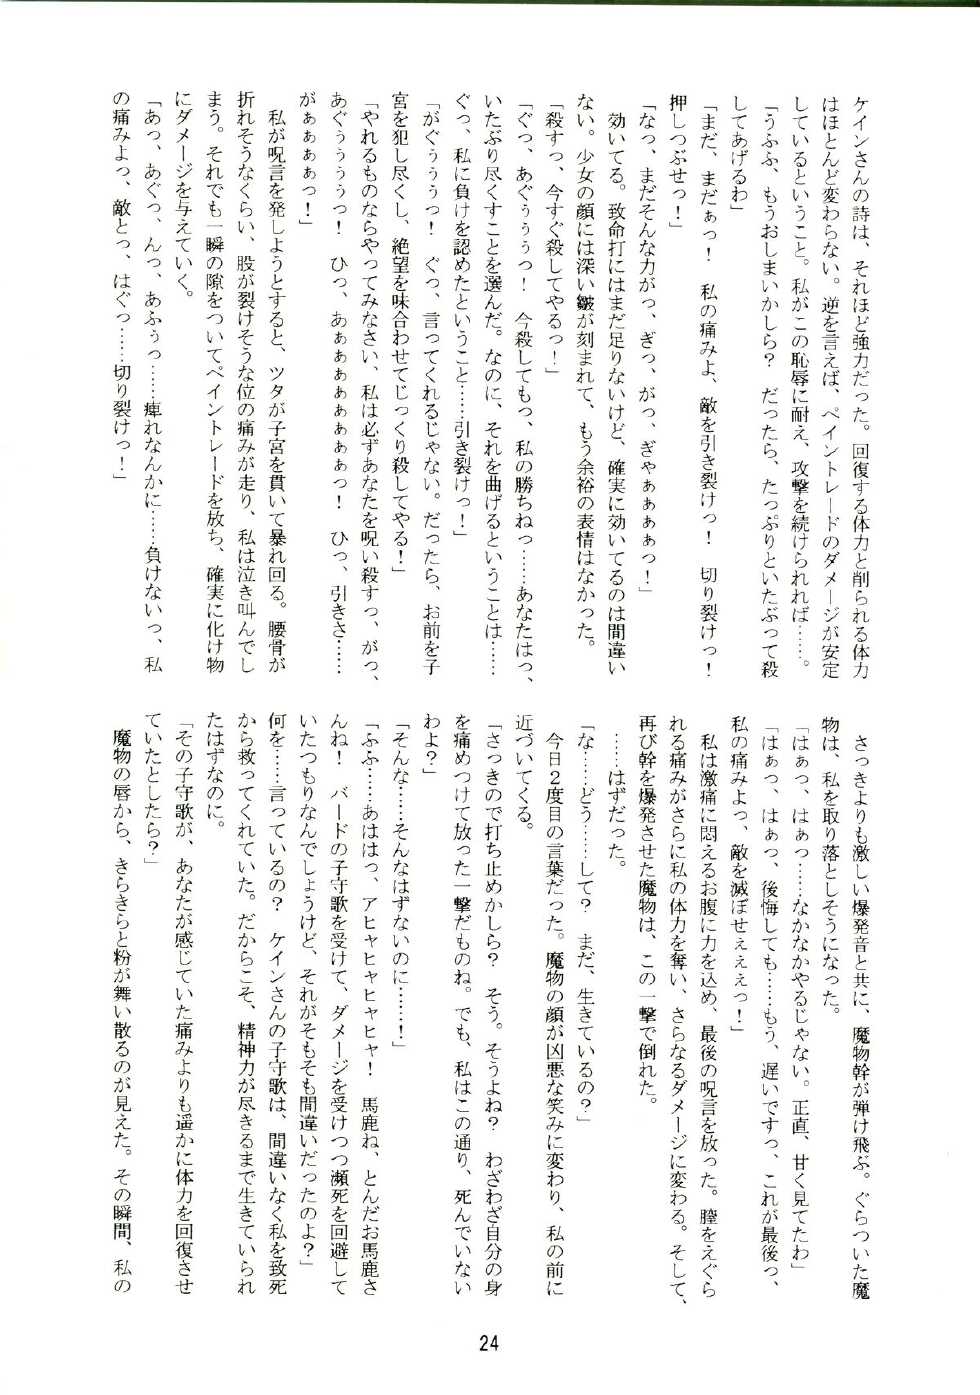 ケインさんの詩は、それほど強力だった。回復する体力と削られる体力
はほとんど変わらない。逆を言えば、ペイントレードのダメージが安定
しているということ。私がこの恥辱に耐え、攻撃を続けられれば……。
「うふふ、もうおしまいかしら？　だったら、たっぷりといたぶって殺
してあげるわ」
「まだ、まだぁっ！　私の痛みよ、敵を引き裂けっ！　切り裂けっ！
押しつぶせっ！」
「なっ、まだそんな力がっ、ぎっ、がっ、ぎゃぁぁぁぁっ！」
　効いてる。致命打にはまだ足りないけど、確実に効いてるのは間違い
ない。少女の顔には深い皺が刻まれて、もう余裕の表情はなかった。
「殺すっ、今すぐ殺してやるっ！」
「ぐっ、あぐぅぅぅっ！　今殺してもっ、私の勝ちねっ……あなたはっ、
いたぶり尽くすことを選んだ。なのに、それを曲げるということは……
ぐっ、私に負けを認めたということ……引き裂けっ！」
「がぐぅぅぅっ！　ぐっ、言ってくれるじゃない。だったら、お前を子
宮を犯し尽くし、絶望を味合わせてじっくり殺してやる！」
「やれるものならやってみなさい、私は必ずあなたを呪い殺すっ、がっ、
あぐぅぅぅぅっ！　ひっ、あぁぁぁぁぁぁぁっ！　ひっ、引きさ……
がぁぁぁぁっ！」
　私が呪言を発しようとすると、ツタが子宮を貫いて暴れ回る。腰骨が
折れそうなくらい、股が裂けそうな位の痛みが走り、私は泣き叫んでし
まう。それでも一瞬の隙をついてペイントレードを放ち、確実に化け物
にダメージを与えていく。
「あっ、あぐっ、んっ、あふぅっ……痺れなんかに……負けないっ、私
の痛みよっ、敵とっ、はぐっ……切り裂けっ！」
　さっきよりも激しい爆発音と共に、魔物幹が弾け飛ぶ。ぐらついた魔
物は、私を取り落としそうになった。
「はぁっ、はぁっ……なかなかやるじゃない。正直、甘く見てたわ」
「はぁっ、はぁっ、後悔しても……もう、遅いですっ、これが最後っ、
私の痛みよっ、敵を滅ぼせぇぇぇっ！」
　私は激痛に悶えるお腹に力を込め、最後の呪言を放った。膣をえぐら
れる痛みがさらに私の体力を奪い、さらなるダメージに変わる。そして、
再び幹を爆発させた魔物は、この一撃で倒れた。
　……はずだった。
「な……どう……して？　まだ、生きているの？」
　今日２度目の言葉だった。魔物の顔が凶悪な笑みに変わり、私の前に
近づいてくる。
「さっきので打ち止めかしら？　そう。そうよね？　わざわざ自分の身
を痛めつけて放った一撃だものね。でも、私はこの通り、死んでいない
わよ？」
「そんな……そんなはずないのに……！」
「ふふ……あははっ、アヒャヒャヒャヒャ！　馬鹿ね、とんだお馬鹿さ
んね！　バードの子守歌を受けて、ダメージを受けつつ瀕死を回避して
いたつもりなんでしょうけど、それがそもそも間違いだったのよ？」
何を……言っているの？　ケインさんの子守歌は、間違いなく私を致死
から救ってくれていた。だからこそ、精神力が尽きるまで生きていられ
たはずなのに。
「その子守歌が、あなたが感じていた痛みよりも遥かに体力を回復させ
ていたとしたら？」
　魔物の唇から、きらきらと粉が舞い散るのが見えた。その瞬間、私の
24